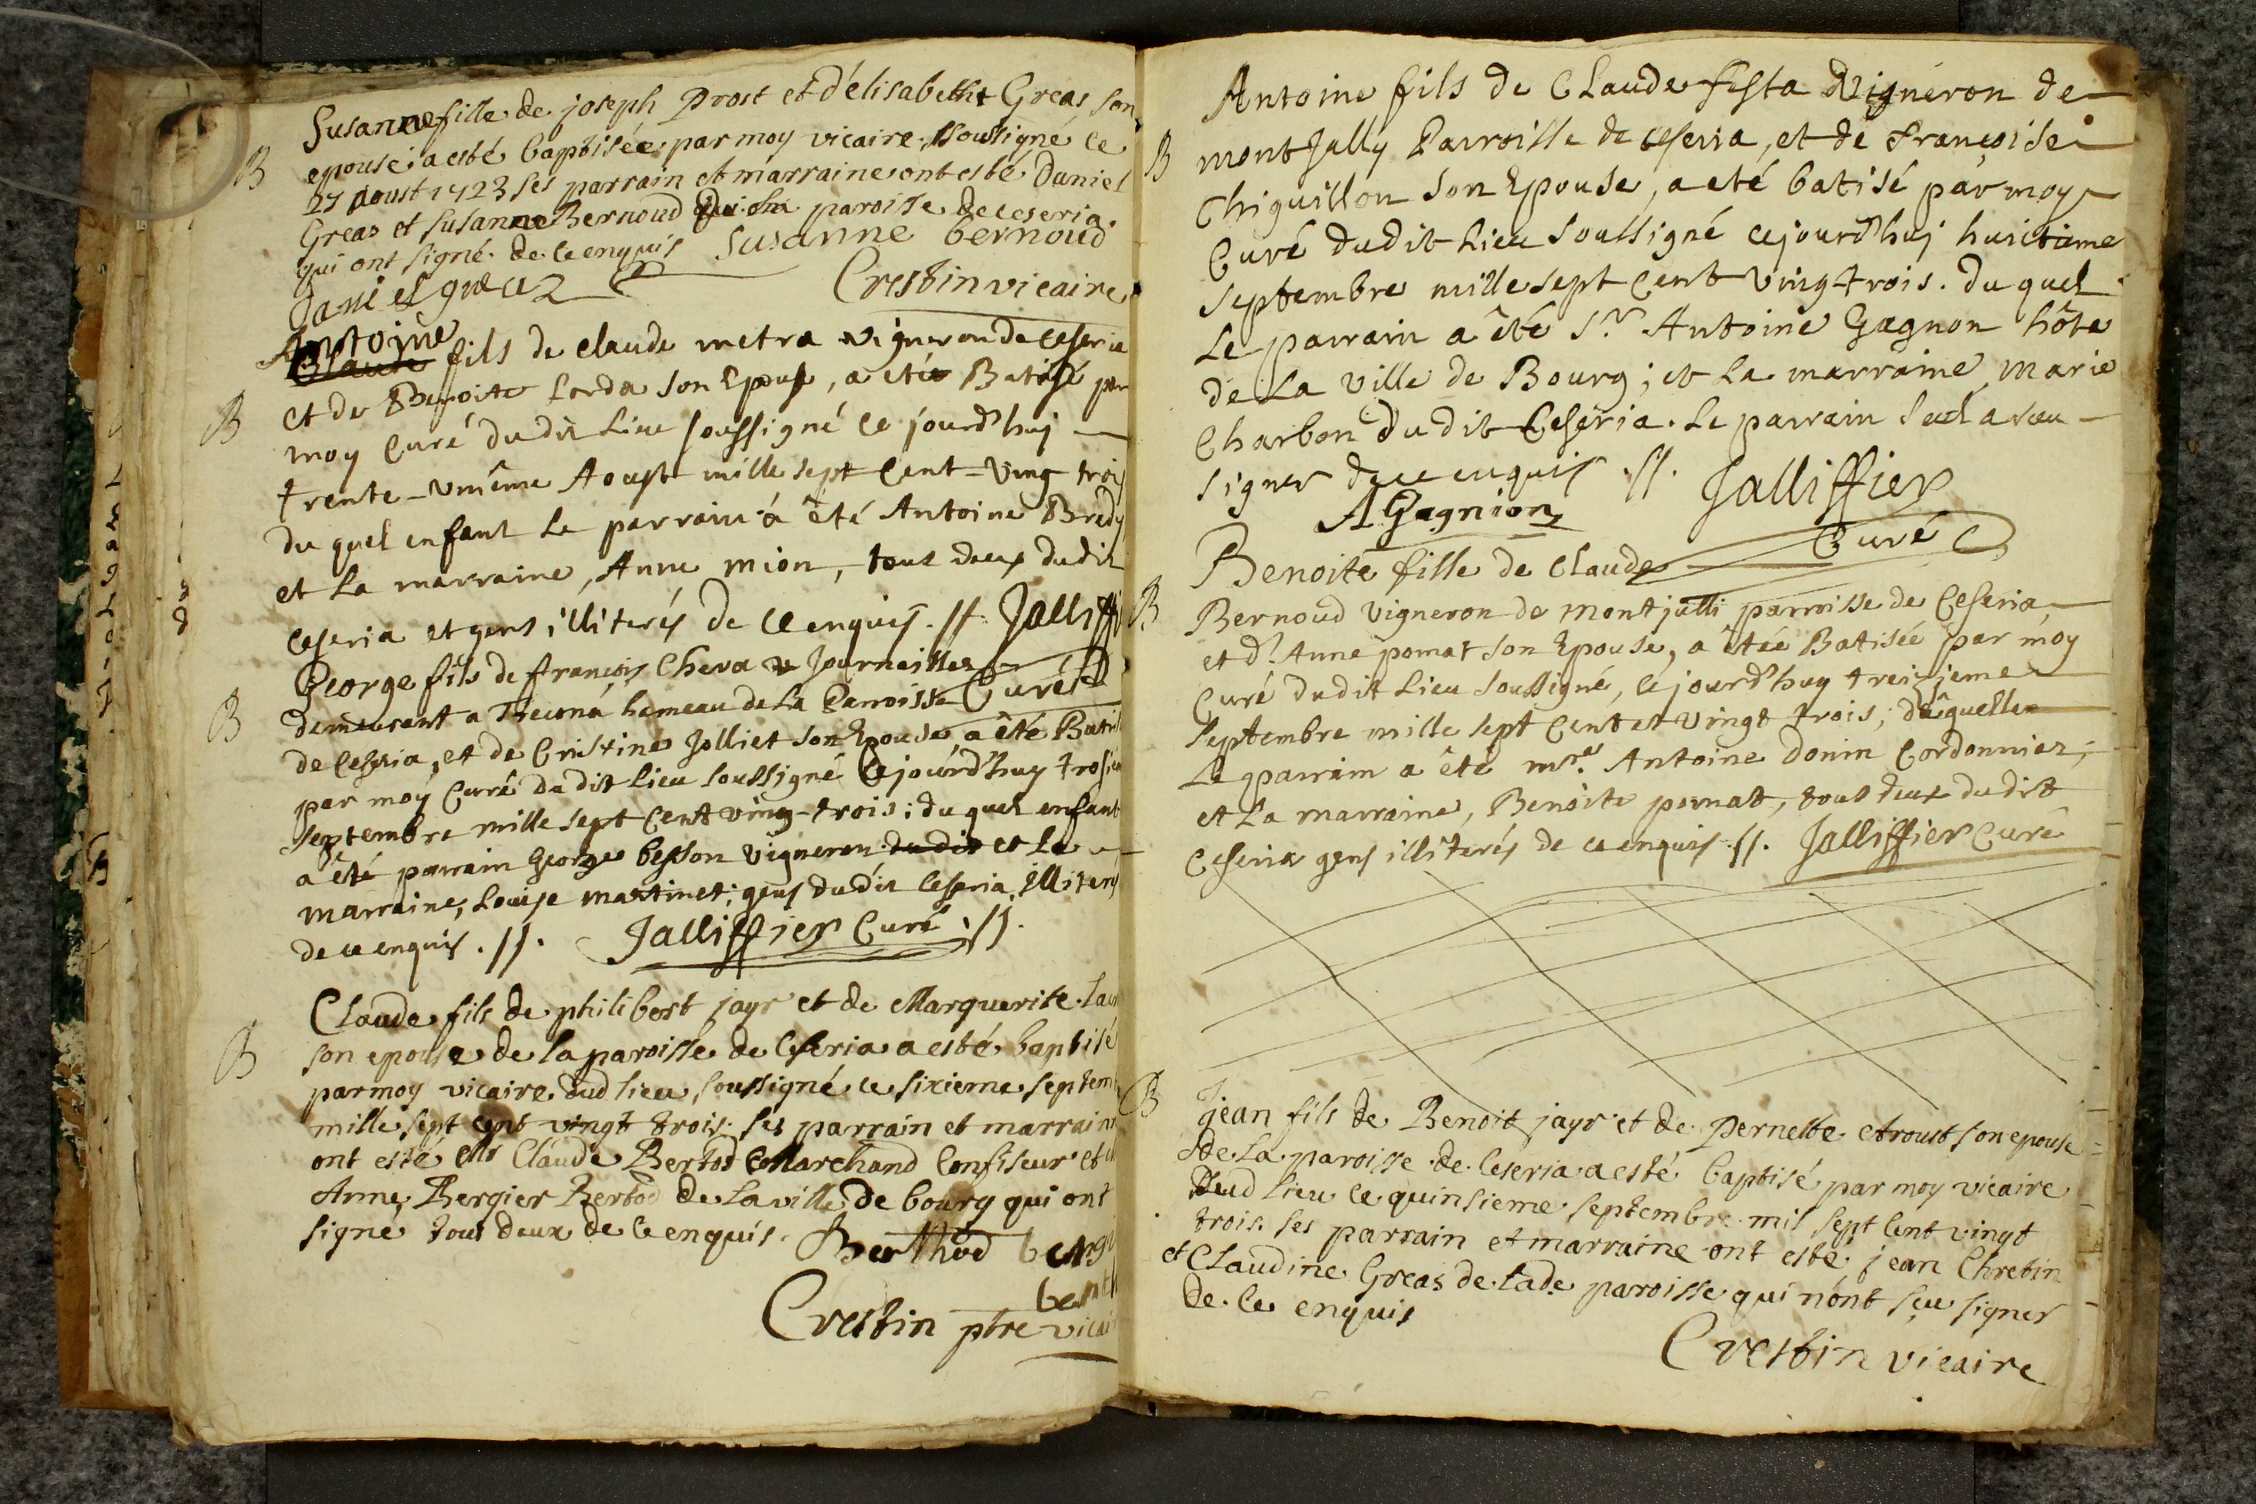 Susanne fille de joseph Prost et d'élisabetht Greas son
B
epouse a esté baptisée par moy vicaire soussigné ce
27 Aoust 1723 ses parrain et marraine ont esté Daniel
Greas et Susanne Bernoud paroisse de ceseria
qui ont signé de ce enquis Susanne bernoud
Daniel greaz
Crestin vicaire
Antoine
Claude fils de claude metra vigneron de ceseria
B
et de Benoite Lorda son Epouse, a eté Batisé par
moy Curé du dit Lieu soussigné ce jourd'huj
trente-vnième Aoust mille sept Cent-Ving trois
du quel enfant le parrain a êté Antoine Bredy
et La marraine, Anne mion, tous deux du dit
ceseria et gens illiterés de ce enquis. //. Jalliffi
George fils de françois Cheva Journallier
Curé
B
demeurant a Trecona hameau de La Parroisse
de Ceseria, et de Cristine Jolliet son Epouse a êté Batisé
par moÿ Curé du dit Lieu soussigné Ce jourd'huy trosie
septembre mille sept Cent ving-trois; du quel enfant
a êté parrain George besson vigneron du dit et La
marraine, Louise martinet; gens du dit Ceseria Illiterés
de ce enquis. //. Jalliffier Curé //.
Claude fils de philibert jayr et de Marguerite Lau
B
son epouse de la paroisse de Ceseria a esté baptisé
par moy vicaire dud lieu soussigné ce sixieme septem
mille sept cent vingt trois ses parrain et marraine
ont esté Mr Claude Bertod Marchand Confiseur et
Anne Bergier Bertod de La ville de bourg qui ont
signé tous deux de ce enquis. Berthod bergi
bert
Crestin ptre vicai
Antoine fils de Claude festa Vigneron de
B
montJully Parroisse de ceseria, et de françoise
Chiguillon son Epouse, a eté batisé par moy
Curé dudit Lieu soussigné cejourd'huj huictieme
septembre mille sept Cent Ving-trois. du quel
Le parrain a êté Sr. Antoine Gagnon hôte
de La ville de Bourg; et La marraine, marie
Charbon du dit Ceseria. Le parrain seul a sceu
signer de ce enquis //. Jalliffier
A Gagnion
Curé
Benoite fille de Claude
B
Bernoud vigneron de montjulli parroisse de Ceseria
et d'Anne pomat son Epouse, a étée Batisée par moy
Curé du dit Lieu soussigné, ce jourd'huy treizieme
septembre mille sept Cent et vingt trois; de quelle
Le parrain a êté mre. Antoine donin Cordonnier;
et La marraine, Benoite pomat, tous deux du dit
Ceseria gens illiterés de ce enquis //. Jalliffier Curé
B
jean fils de Benoit jayr et de Pernette son epouse
de La paroisse de Ceseria a esté baptisé par moy vicaire
dud lieu ce quinsieme septembre mil sept cent vingt
trois. ses parrain et marraine ont esté jean Chretin
et Claudine Greas de lade paroisse qui n'ont sçu signer
de ce enquis
Crestin vicaire